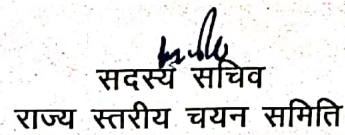 सदस्य सचिव
राज्य स्तरीय चयन समिति